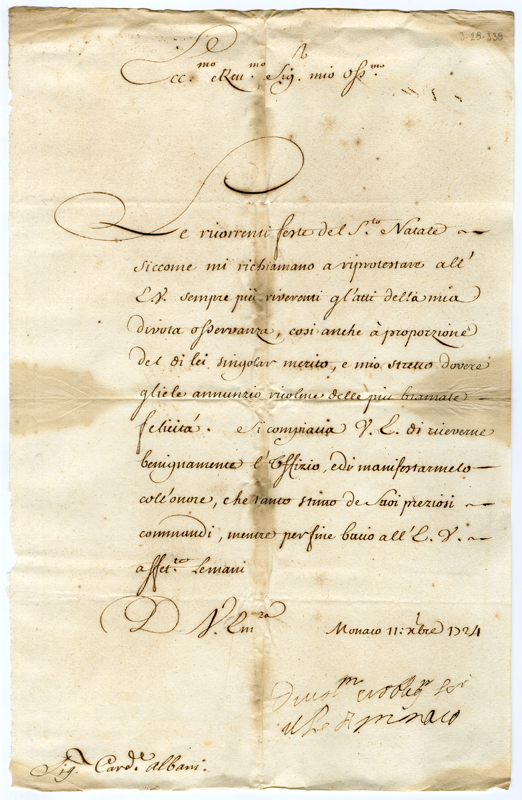 3-28-338
Ecc.mo e Reu.mo Sig. mio Oss.mo
Le ricorrenti feste del S.to Natale
siccome mi richiamano a riprotestare all'
E.V. sempre più riverenti gl'atti della mia
divota osservanza, così anche à proporzione
del di lei singolar merito, e mio stretto dovere
gliele annunzio ricolme delle più bramate
felicità. Si compiacia V. E. di riceverne
benignamente l'Offizio, e di manifestarmelo
col'onore, che tanto stimo de Suoi preziosi
commandi, mentre per fine bacio all'E. V.
affett.te le mani
D. V. Em.za
Monaco 11: Xbre 1724
Monaco
Sig. Card.le Albani.